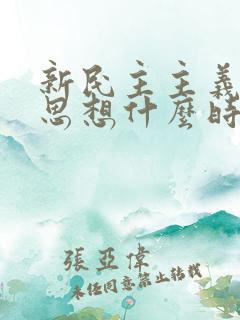 新民主主義
思想什麼時
張亞偉
未經同意禁止轉載